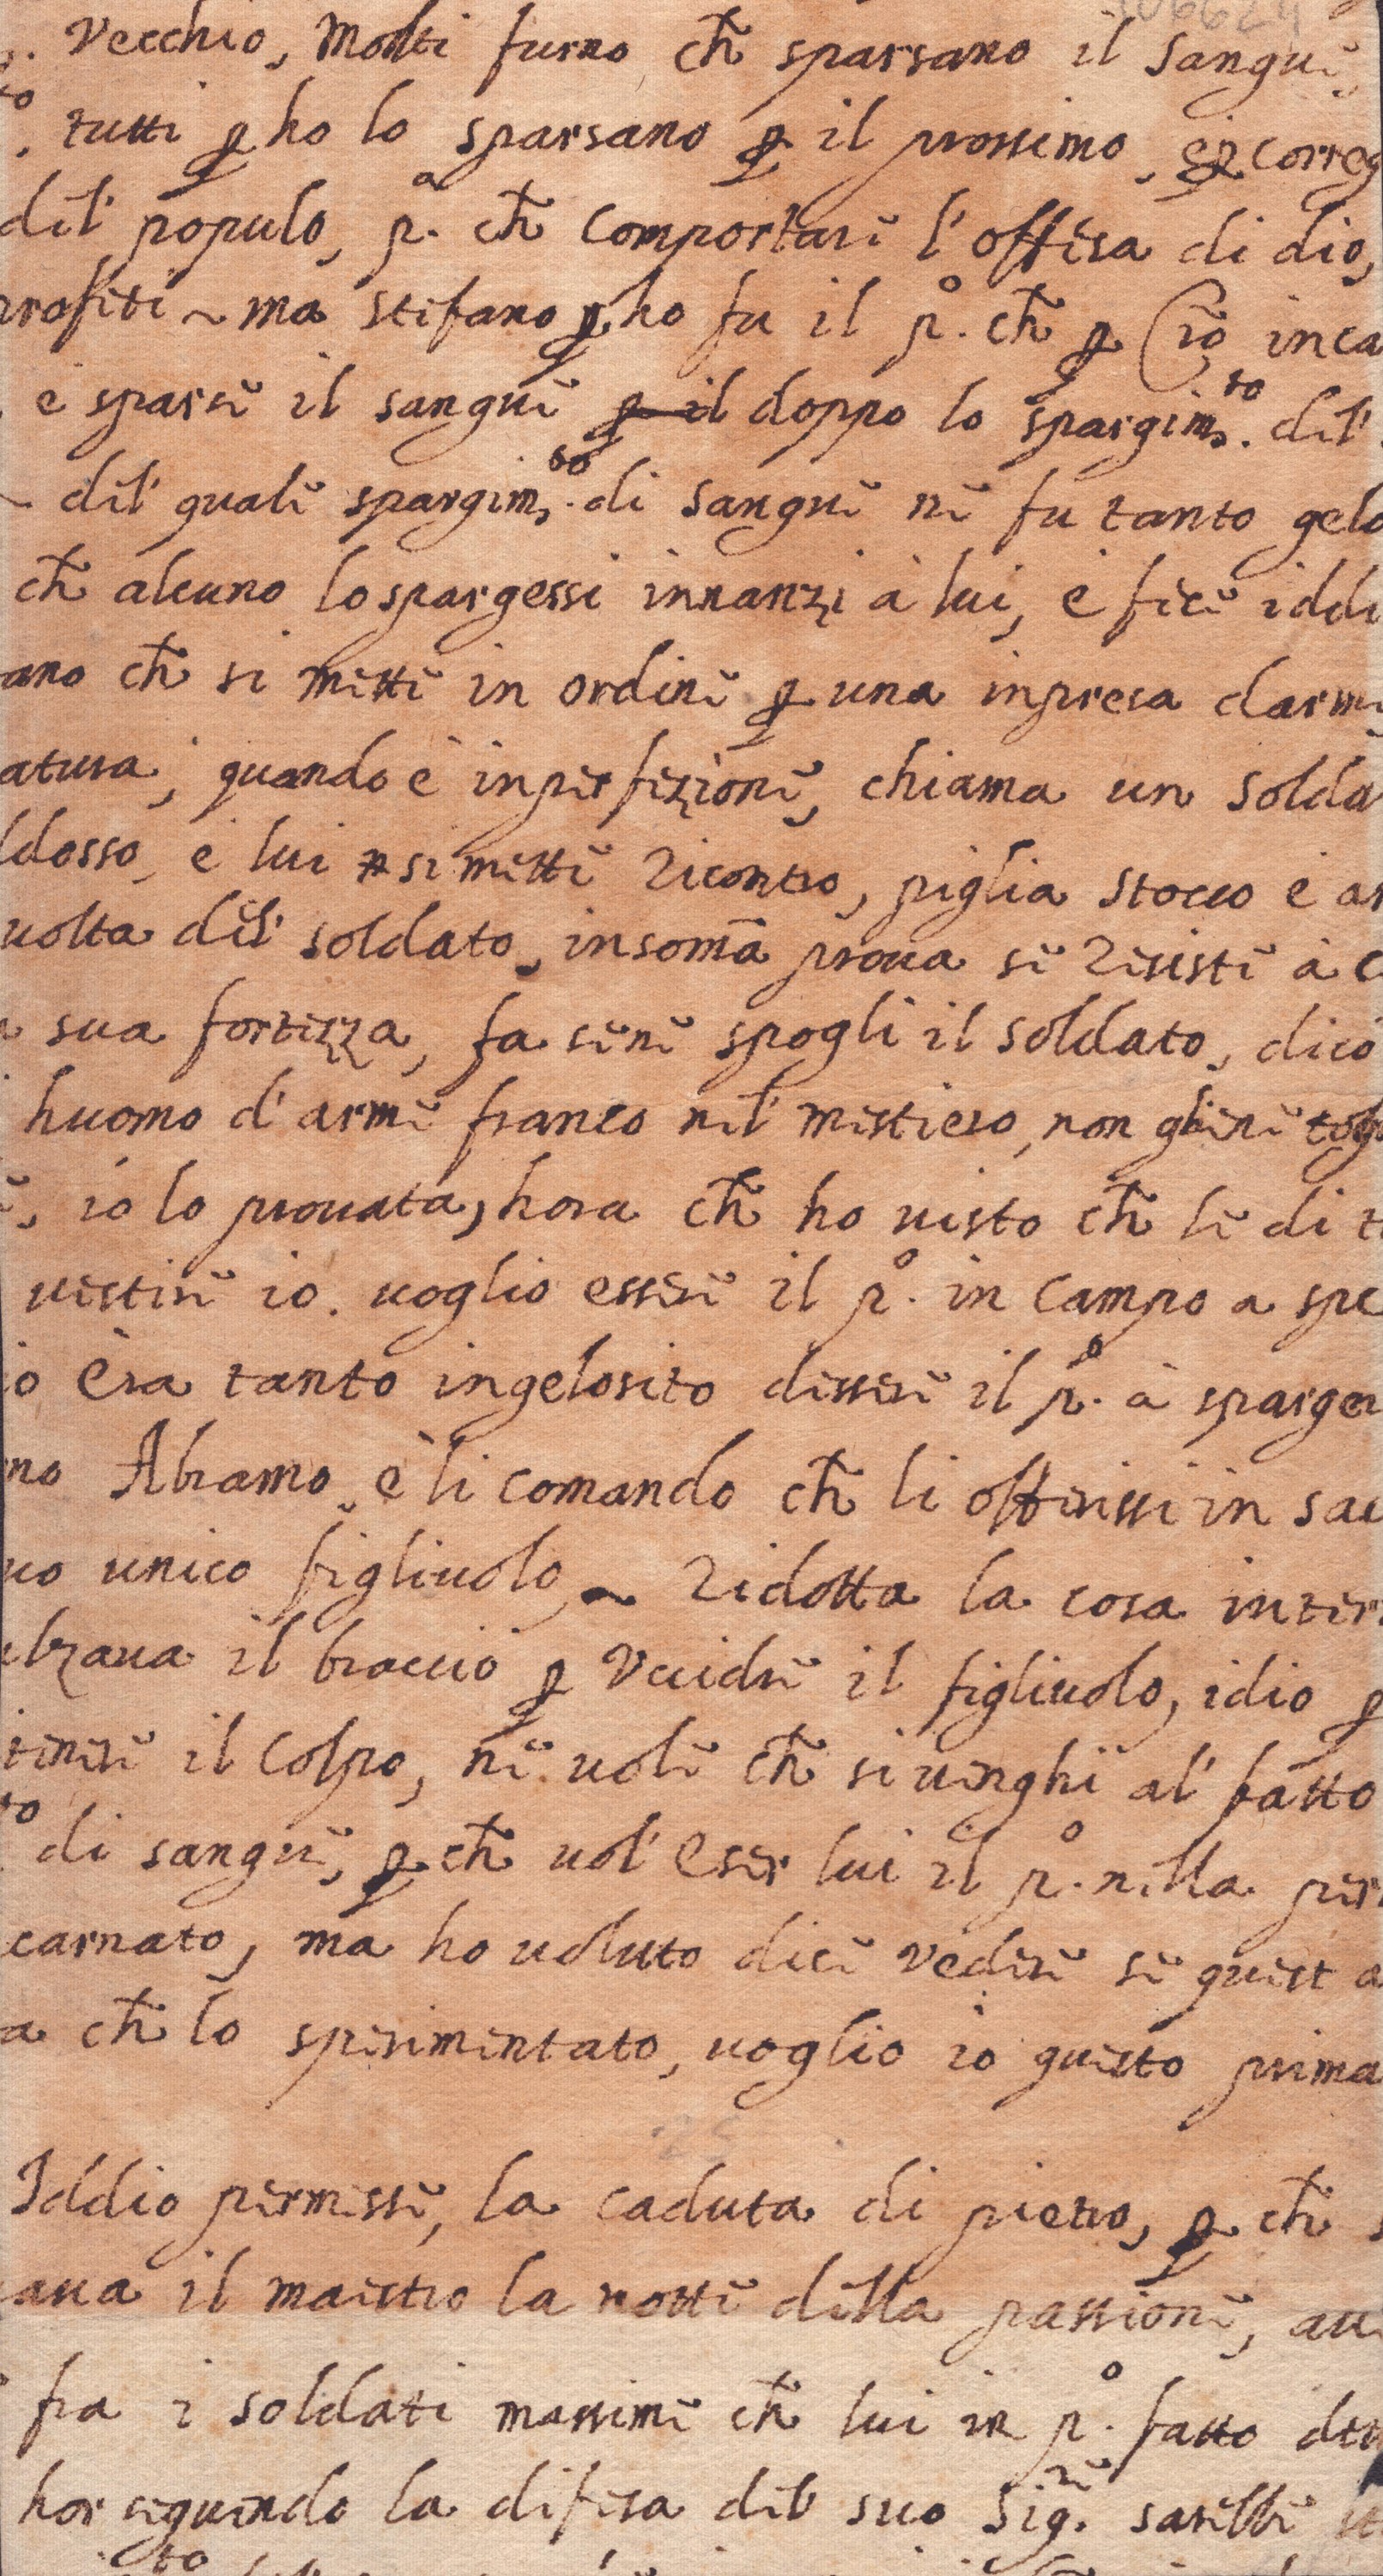 Vecchio, Molti furno ch̃ sparsano il Sangue
tutti ꝑho lo sparsano ꝑ il prossimo, ꝑ correg
del' populo, pª. ch̃ comportare l'offesa di dio,
profeti ~ ma stefano ꝑho fu il p.º ch̃ ꝑ inca
e sparse il sangue ꝑ il doppo lo spargim.to del'
del' quale spargim.to di sangue ne fu tanto gelo
ch̃ alcuno lo spargessi innanzi à lui, e fece iddi
ano ch̃ si mette in ordine ꝑ una inpresa darme
atura, quando è inperfezione, chiama un solda
ldosso, e lui si mette ricontro, piglia stocco e ar
uolta del' soldato, insomã proua se resiste à c
sua fortezza, fa sene spogli il soldato, dico
huomo d'arme franco nel' mestiero, non gliene togl
io lo prouata, hora ch̃ ho uisto ch̃ le di t
uestire io. uoglio essere il p.º in campo a spe
io era tanto ingelosito dessere il p.º à sparger
no Abramo, e li comando ch̃ li offerissi in sac
uo unico figliuolo, ~ Ridotta la cosa inter
lzaua il braccio ꝑ Vccidre il figliuolo, idio ꝑ
tenere il colpo, ne uole ch̃ si uenghi al' fatto
to di sangue, ꝑch̃ uol' eser lui il p.º nella pers
carnato, ma ho uoluto dice vedere se quest a
a ch̃ lo sperimentato, uoglio io questo prima
Iddio permesse, la caduta di pietro, ꝑch̃ s
aua il maestro la notte della passione, aue
fra i soldati massime ch̃ lui in p.º fatto
hor seguendo la difesa del suo Sig.re sarebbe